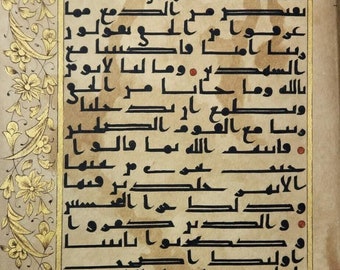 تفيض من الدمع مما
عرفوا من الحق يقولون
ربنا امنا فاكتبنا مع
الشهدين وما لنا لا نومن
بالله وما جانا من الحق
ونطمع ان يدخلنا
ربنا مع القوم الصلحين
فاثبهم الله بما قالوا
جنت تجري من تحتها
الانهر خلدين فيها
وذلك جزا المحسنين
والذين كفروا
وكذبوا بايتنا
اولئك اصحب